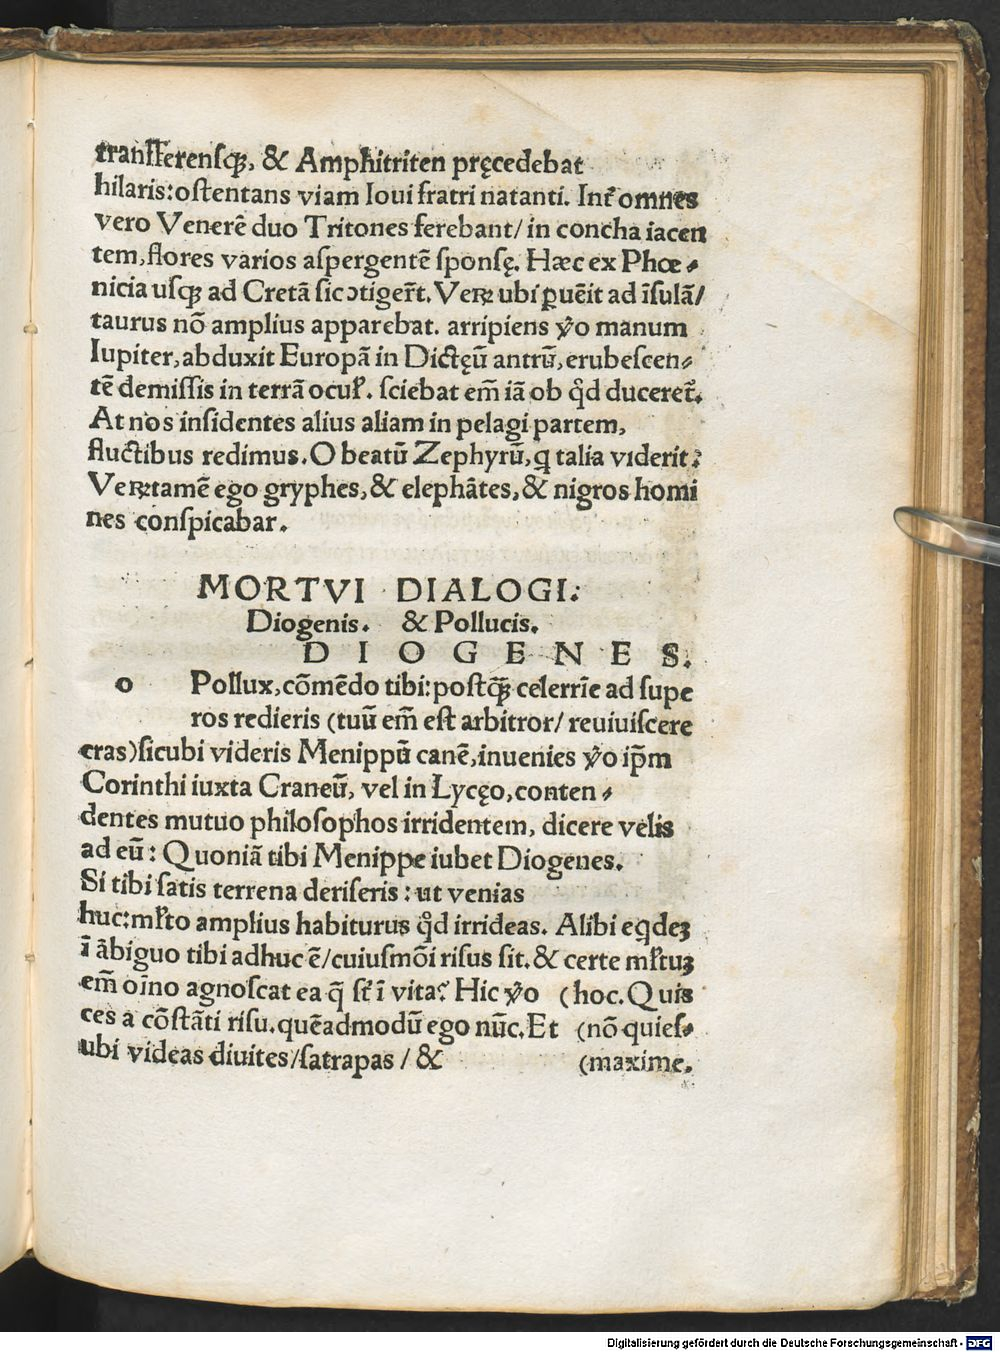 tranſferenſqꝫ, & Amphitriten pręcedebat
hilaris: oſtentans viam Ioui fratri natanti. Int̃ omnes
vero Venerẽ duo Tritones ferebant/ in concha iacen
tem, flores varios aſpergentẽ ſponſę. Hæc ex Phœ⸗
nicia uſqꝫ ad Cretã ſic ↄtigerũt. Veꝝ ubi ꝑuẽit ad ĩſulã/
taurus nõ amplius apparebat. arripiens ꝟo manum
Iupiter, abduxit Europã in Dictęũ antrũ, erubeſcen⸗
tẽ demiſſis in terrã ocul̃. ſciebat em̃ iã ob qd̃ duceret̃.
At nos inſidentes alius aliam in pelagi partem,
fluctibus redimus. O beatũ Zephyrũ, q talia viderit:
Veꝝtamẽ ego gryphes, & elephãtes, & nigros homi
nes conſpicabar.
MORTVI DIALOGI:
Diogenis. & Pollucis.
D I O G E N E S.
o Pollux, cõmẽdo tibi: poſtqꝫ̃ celerrĩe ad ſupe
ros redieris (tuũ em̃ eſt arbitror/ reuiuiſcere
cras) ſicubi videris Menippũ canẽ, inuenies ꝟo ip̃m
Corinthi iuxta Craneũ, vel in Lycęo, conten⸗
dentes mutuo philoſophos irridentem, dicere velis
ad eũ: Quoniã tibi Menippe iubet Diogenes.
Si tibi ſatis terrena deriſeris: ut venias
huc: ml̃to amplius habiturus qd̃ irrideas. Alibi eqdeꝫ
ĩ ãbiguo tibi adhuc ẽ/ cuiuſmõi riſus ſit. & certe ml̃tuꝫ
em̃ oĩno agnoſcat ea q̃ ſt̃ ĩ vita? Hic ꝟo (hoc. Quis
ces a cõſtãti riſu. quẽadmodũ ego nũc. Et (nõ quieſ⸗
ubi videas diuites/ ſatrapas / & (maxime.
Digitalisierung gefördert durch die Deutsche Forschungsgemeinschaft - DFG